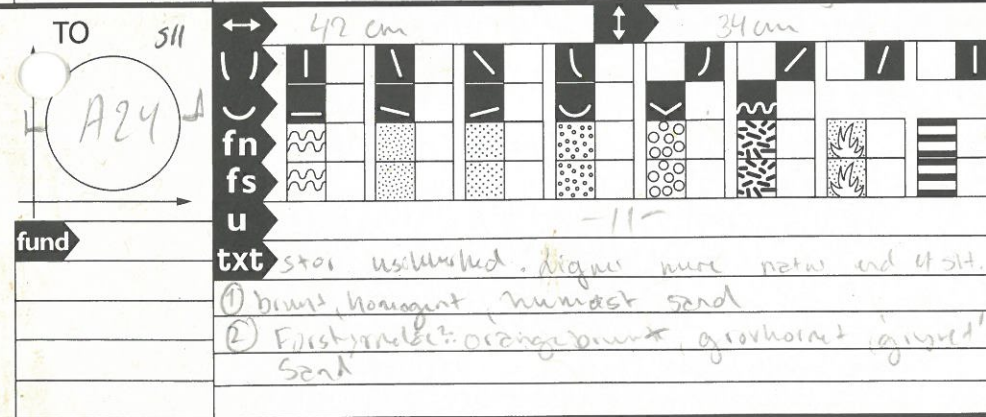 TO SII
42 cm
34 cm
A24
fn
fs
u
-11-
fund
txt stor usikkerhed. Ligner mere natur end et slt.
① brunt, homogent, humøst sand
② Forstyrrelse?: orangebrunt, grovkornet, gruset
sand